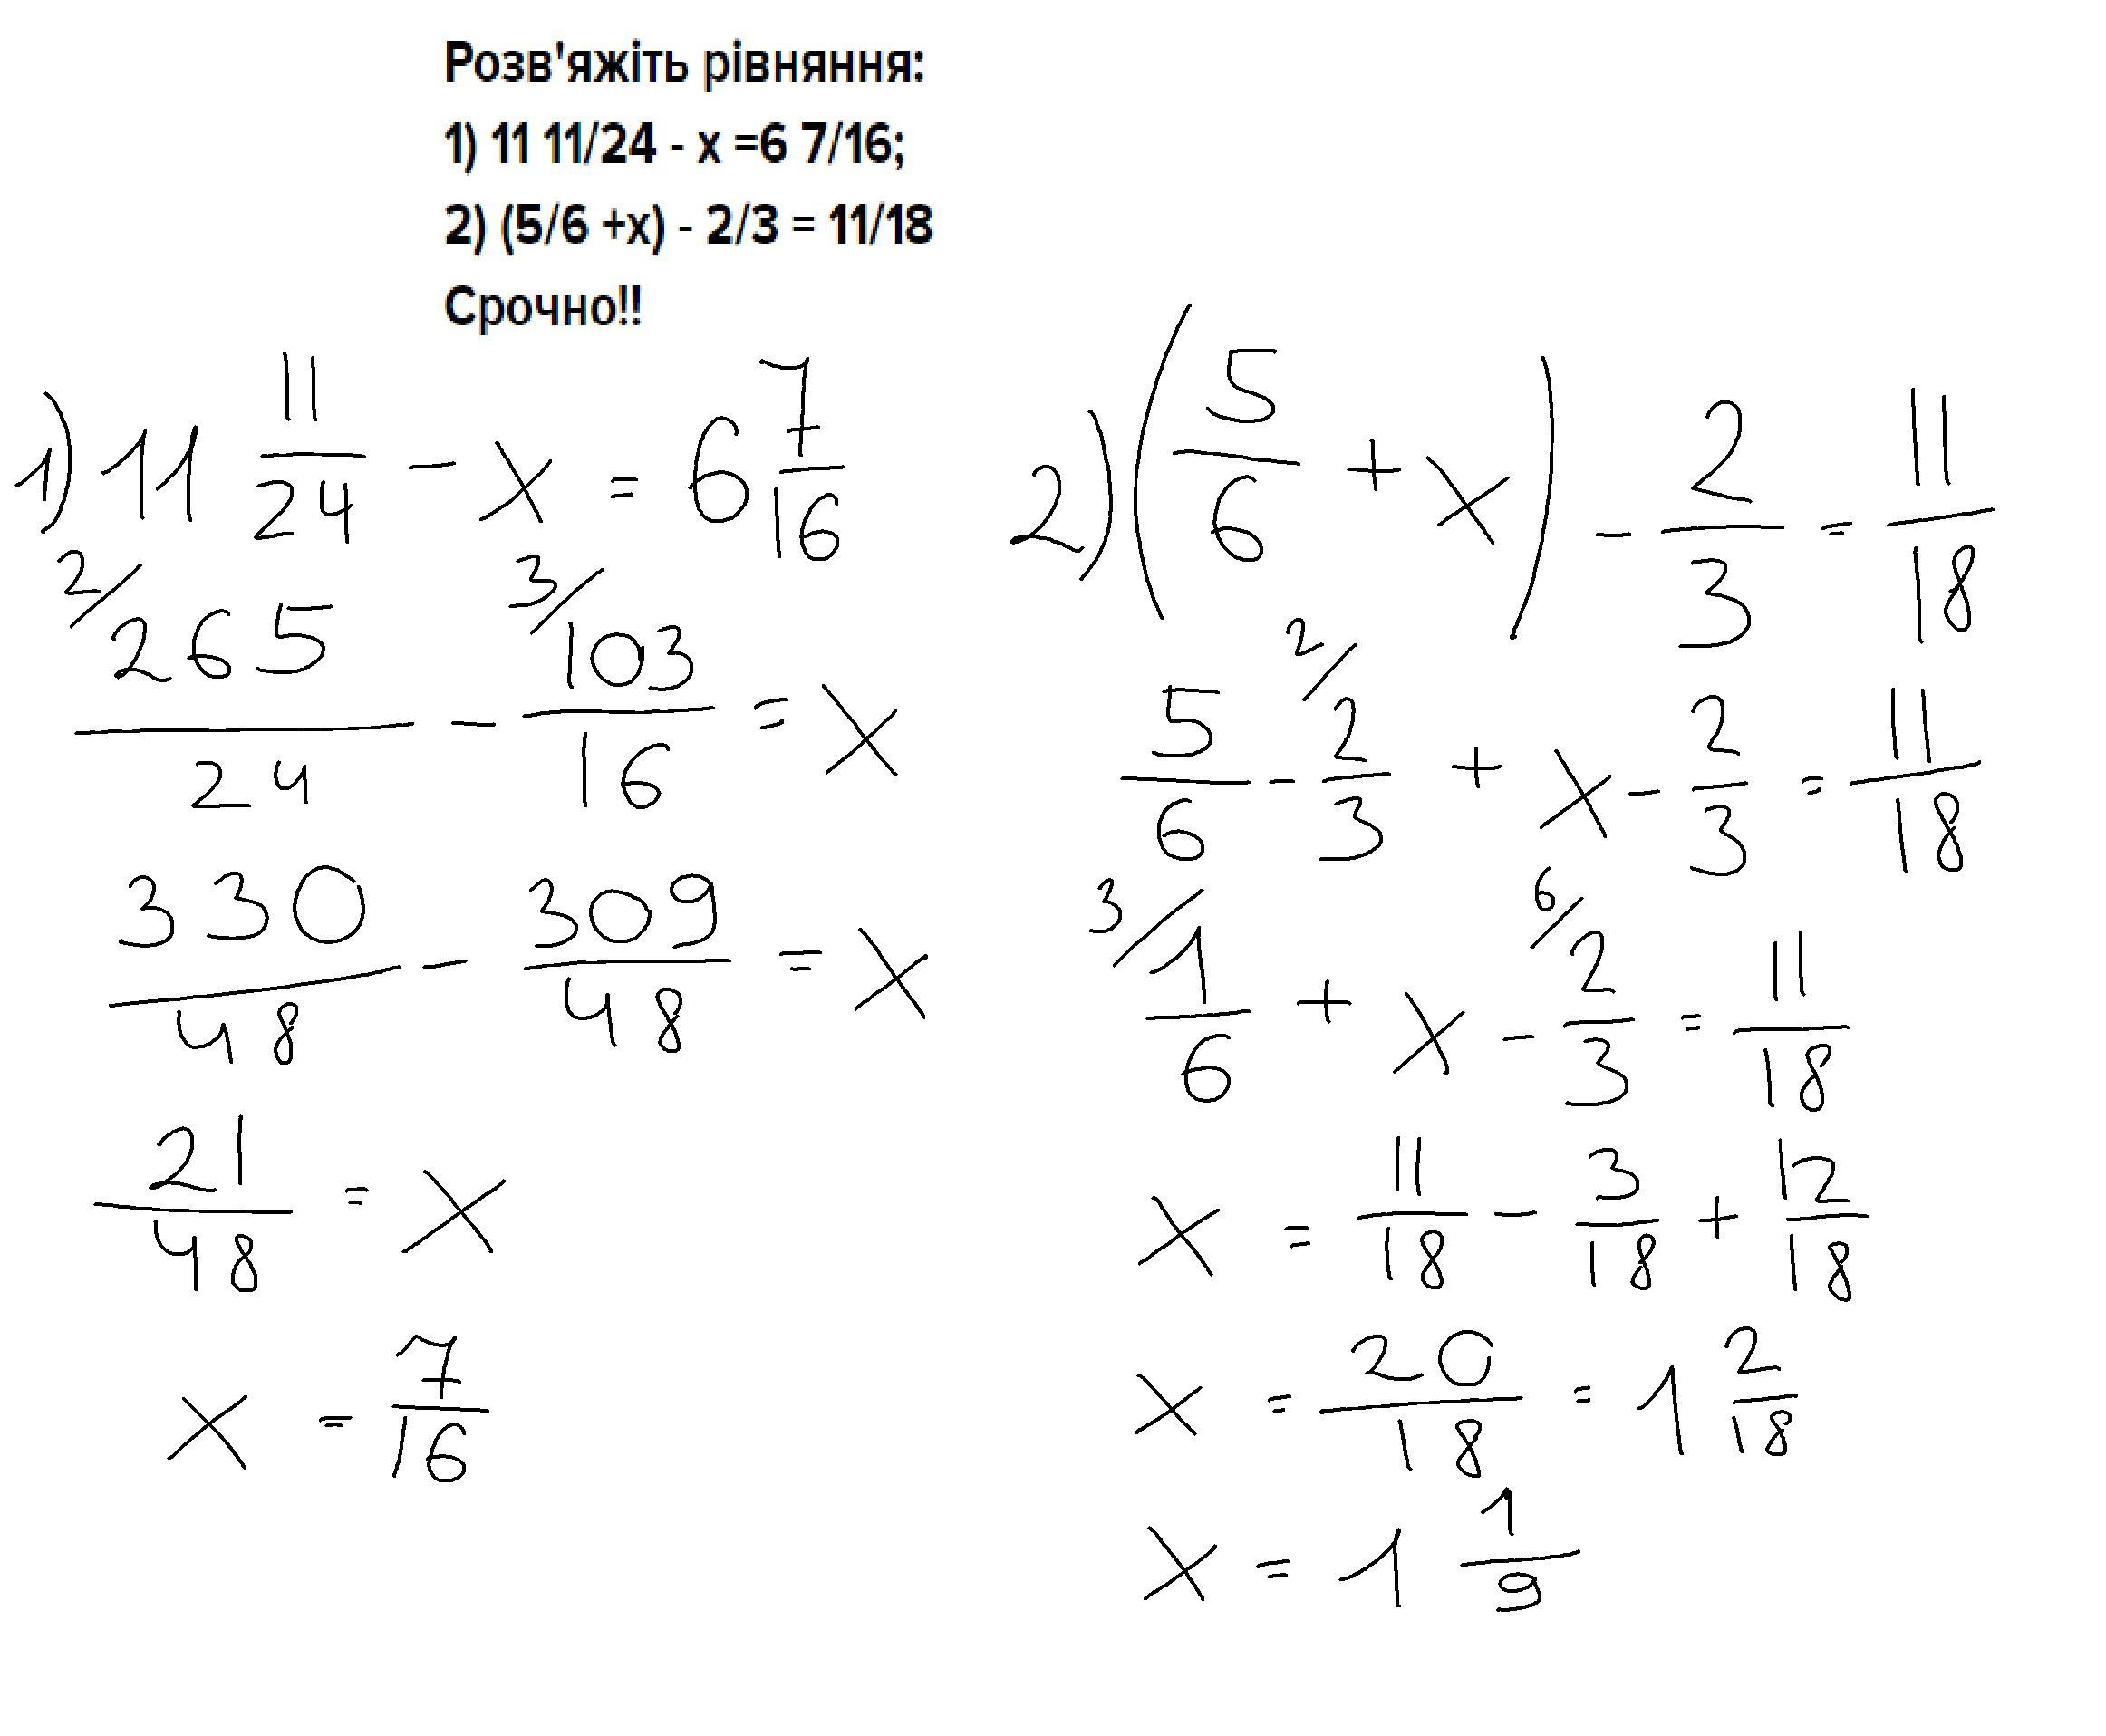 Розв'яжіть рівняння:
1) 11 11/24 - x =6 7/16;
2) (5/6 +x) - 2/3 = 11/18
Срочно!!
1) 11 11/24 - x = 6 7/16
2/ 265/24 - 3/ 103/16 = x
330/48 - 309/48 = x
21/48 = x
x = 7/16
2) (5/6 + x) - 2/3 = 11/18
5/6 - 2/ 2/3 + x - 2/3 = 11/18
3/ 1/6 + x - 6/ 2/3 = 11/18
x = 11/18 - 3/18 + 12/18
x = 20/18 = 1 2/18
x = 1 1/9